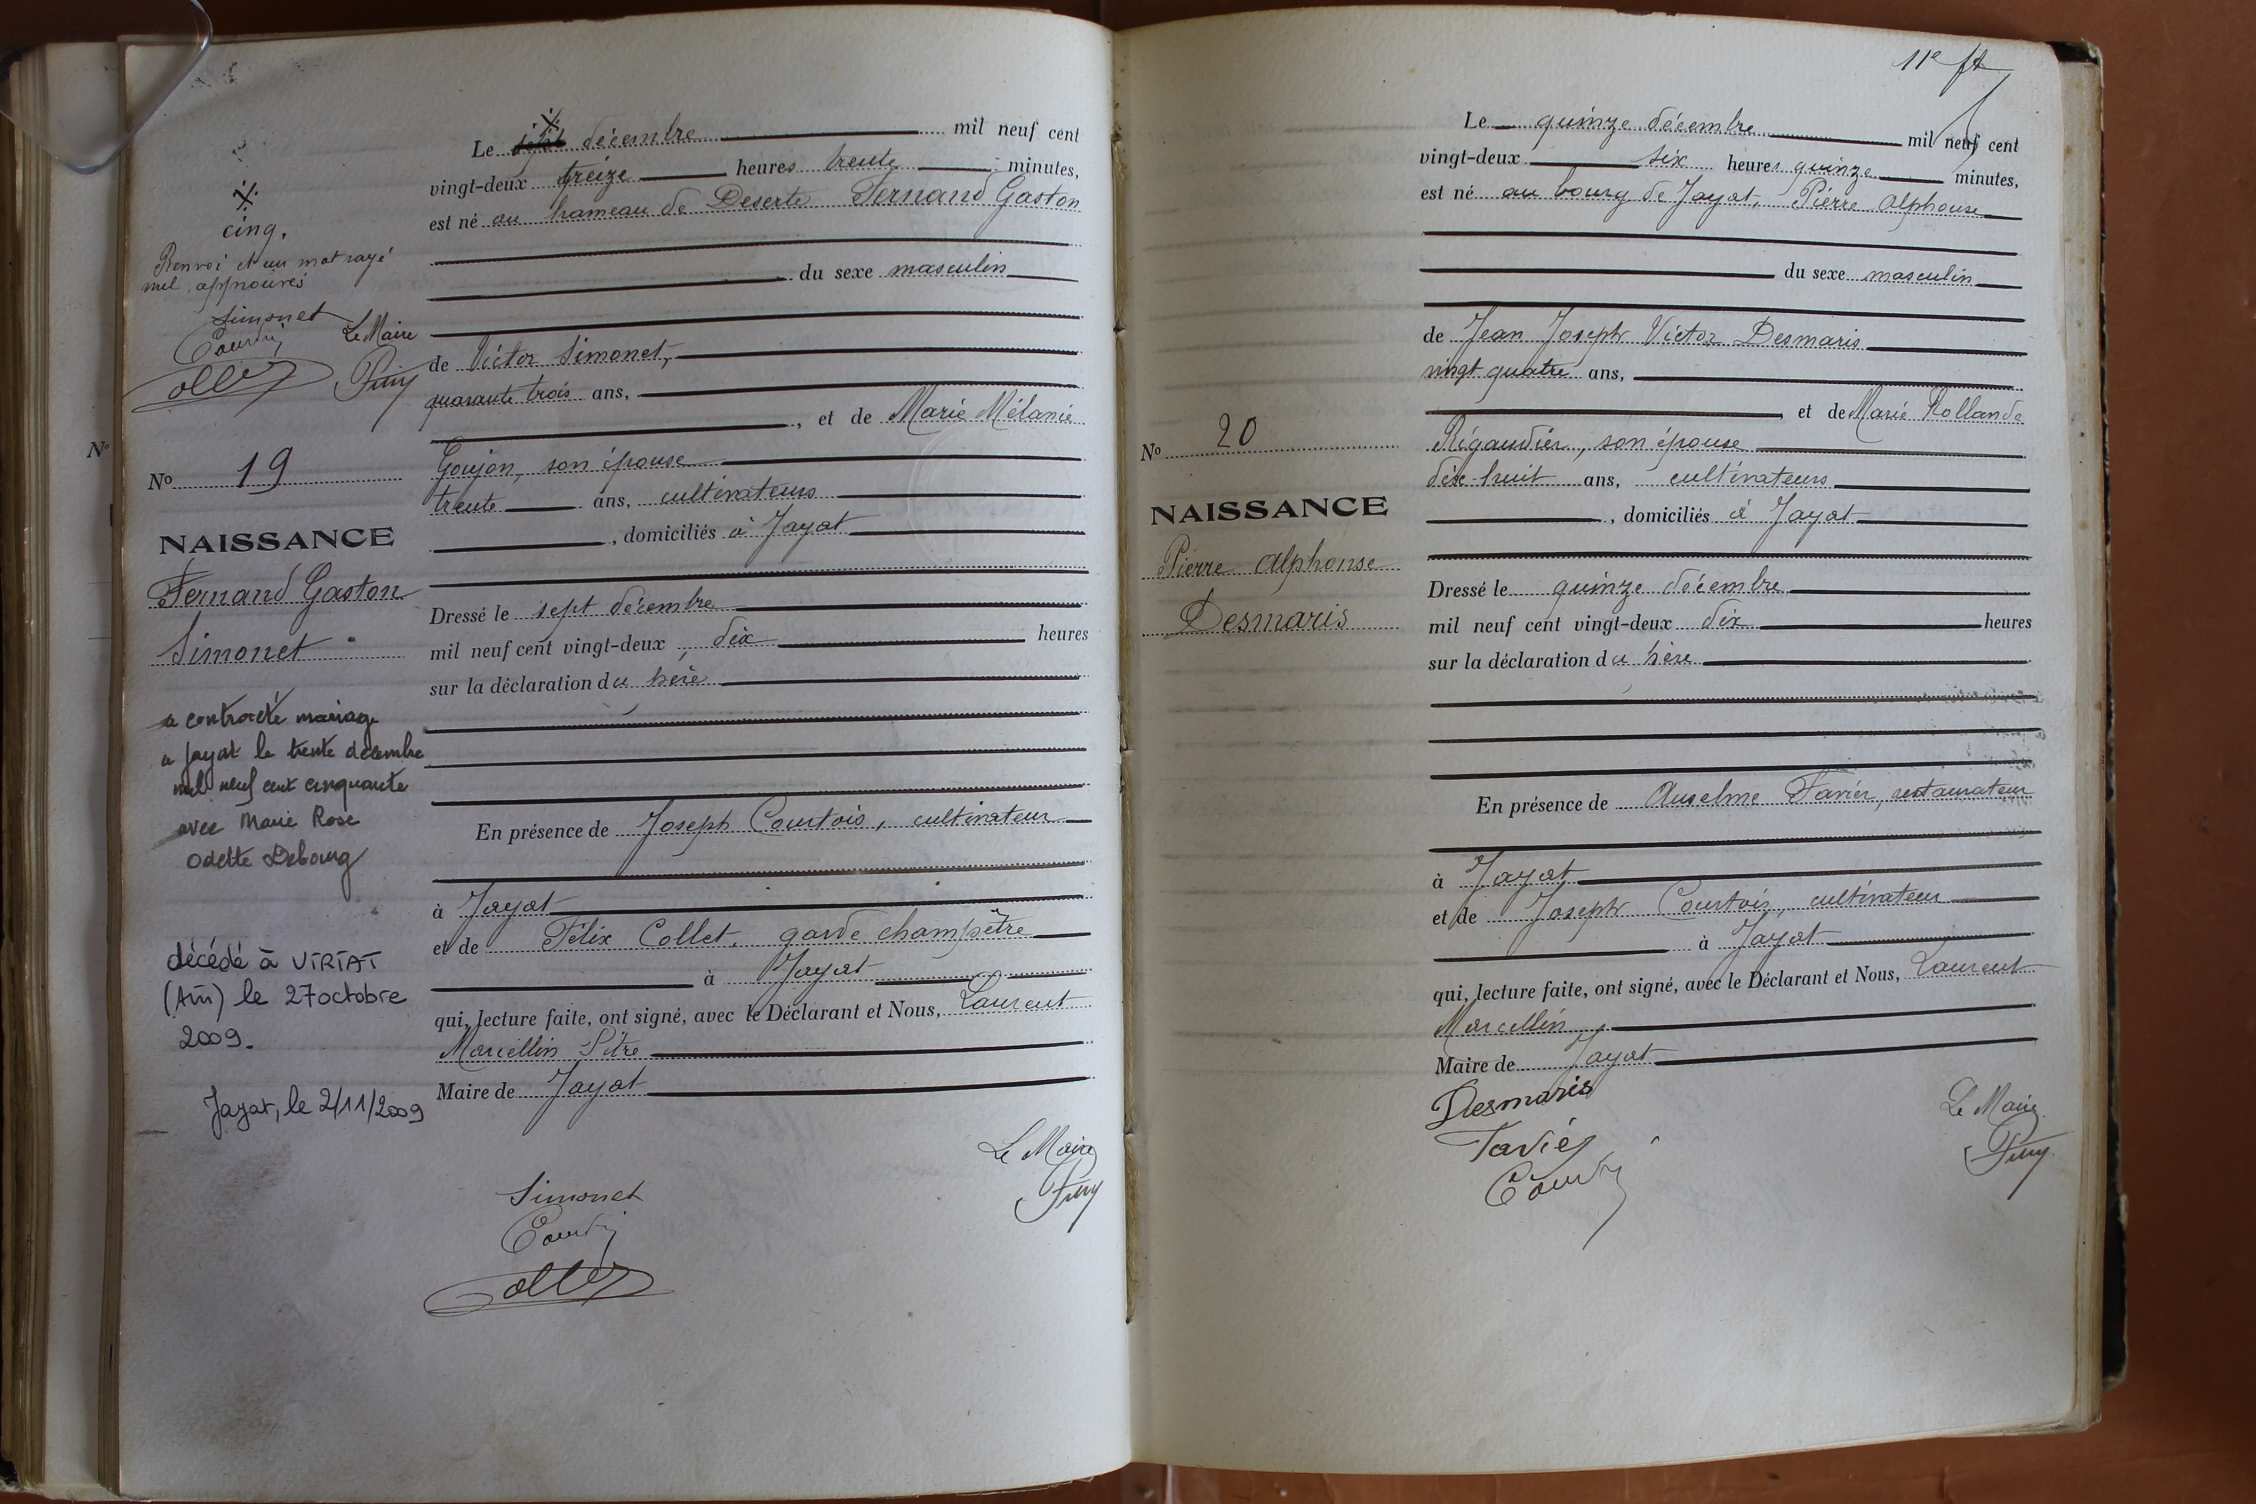 Le sept décembre mil neuf cent
vingt-deux treize heures trente minutes,
est né au hameau de Deserte Fernand Gaston
du sexe masculin
de Victor Simonet,
quarante trois ans,
, et de Marie Mélanie
Goujon, son épouse
trente ans, cultivateurs
, domiciliés à Jayat
Dressé le sept décembre
mil neuf cent vingt-deux, dix heures
sur la déclaration du père
En présence de Joseph Courtois, cultivateur
à Jayat
et de Félix Collet, garde champêtre
à Jayat
qui, lecture faite, ont signé, avec le Déclarant et Nous, Laurent
Marcellin Pitre
Maire de Jayat
Le Maire
Simonet
cinq.
Renvoi et un mot rayé
nul approuvés
Simonet
Le Maire
No
No 19
NAISSANCE
Fernand Gaston
Simonet
a contracté mariage
a Jayat le trente décembre
mil neuf cent cinquante
avec Marie Rose
Odette Debourg
décédé à VIRIAT
(Ain) le 27 octobre
2009.
Jayat, le 2/11/2009
11e ft
Le quinze décembre mil neuf cent
vingt-deux six heures quinze minutes,
est né au bourg de Jayat, Pierre Alphonse
du sexe masculin
de Jean Joseph Victor Desmaris
vingt quatre ans,
, et de Marie Rollande
Rigaudier, son épouse
dix-huit ans, cultivateurs
, domiciliés à Jayat
Dressé le quinze décembre
mil neuf cent vingt-deux dix heures
sur la déclaration du père
En présence de Anselme Favier, restaurateur
à Jayat
et de Joseph Courtois, cultivateur
à Jayat
qui, lecture faite, ont signé, avec le Déclarant et Nous, Laurent
Marcellin
Maire de Jayat
Desmaris
Le Maire
Favier
No 20
NAISSANCE
Pierre Alphonse
Desmaris